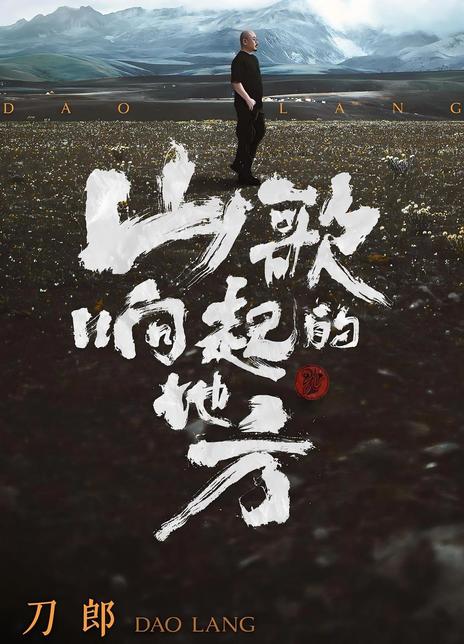 DAO LANG
山歌
响起的
地方
刀郎 DAO LANG